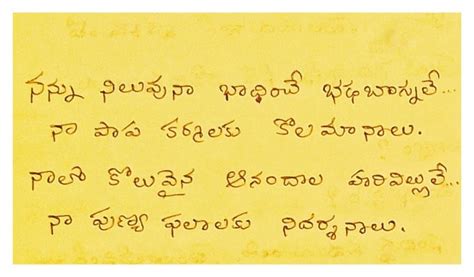 నన్ను నిలువునా బాధించే భఢబాగ్నులే...
నా పాప కర్మలకు కొలమానాలు.
నాలో కొలువైన ఆనందాల హరివిల్లులే...
నా పుణ్య ఫలాలకు నిదర్శనాలు.